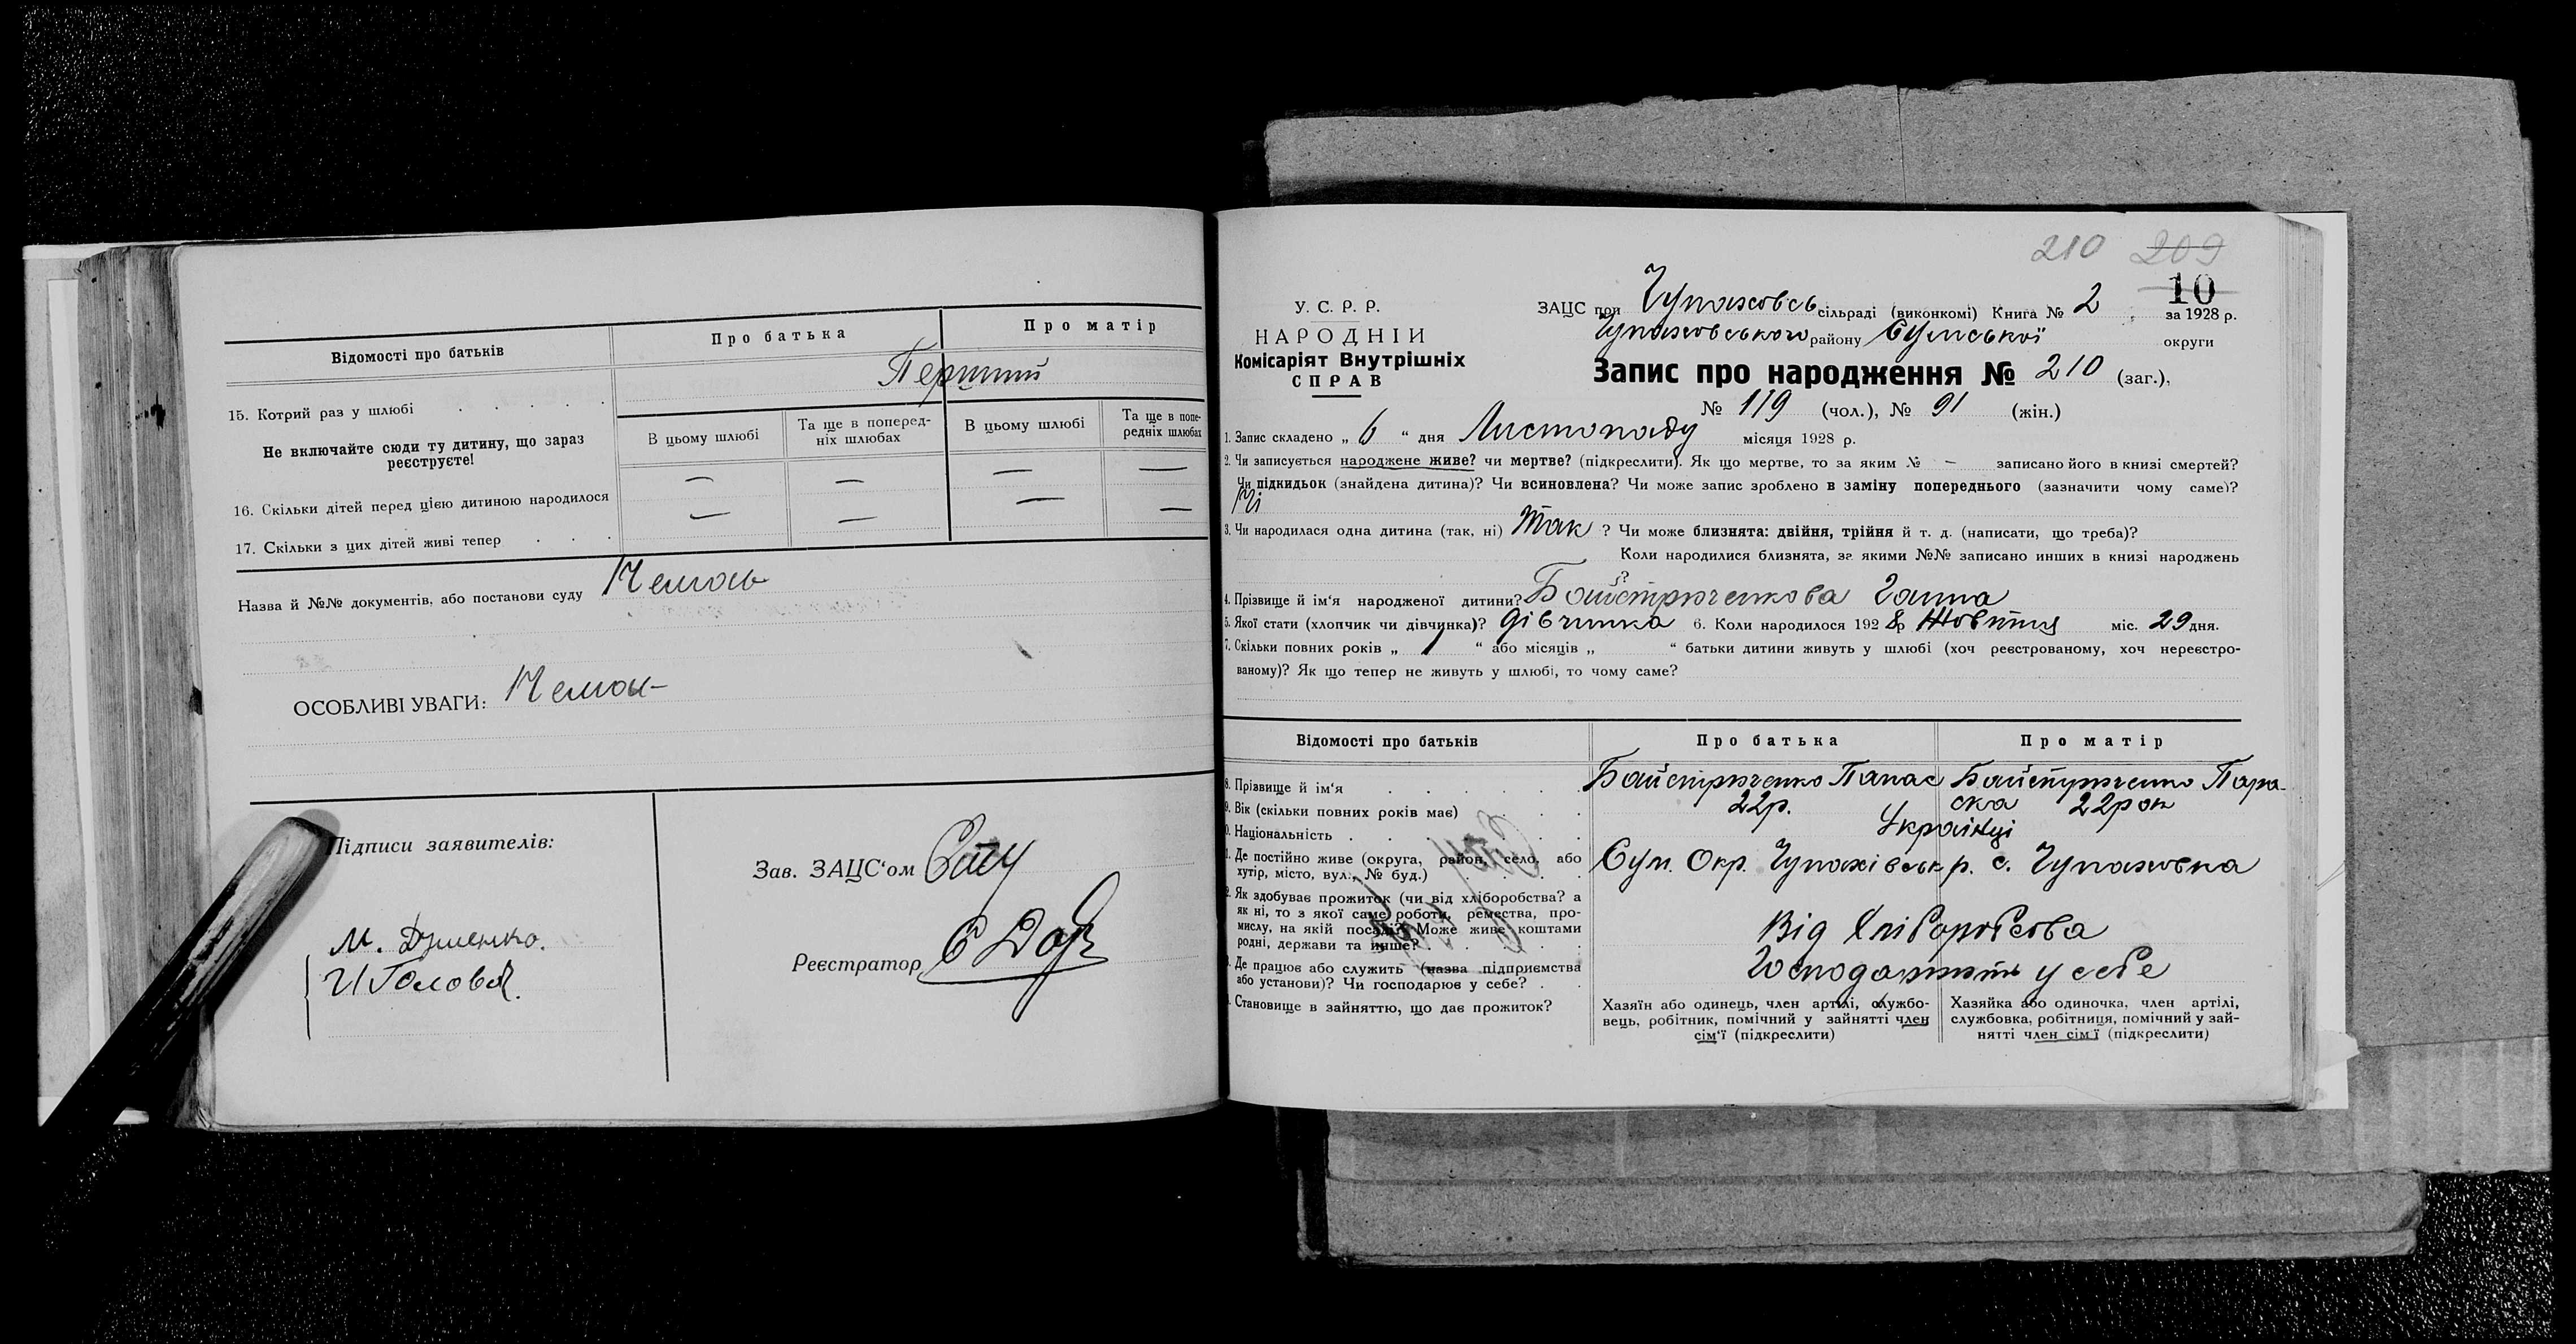 Відомості про батьків
Про батька
Про матір
15. Котрий раз у шлюбі
Перший
Не включайте сюди ту дитину, що зараз реєструєте!
В цьому шлюбі
Та ще в попередніх шлюбах
В цьому шлюбі
Та ще в попередніх шлюбах
16. Скільки дітей перед цією дитиною народилося — — — —
17. Скільки з цих дітей живі тепер — — — —
Назва й №№ документів, або постанови суду Немає
ОСОБЛИВІ УВАГИ: Немає
Підписи заявителів:
М. Душенко.
И Голова
Зав. ЗАЦС'ом
Реєстратор
210 209
10
У. С. Р. Р.
НАРОДНІЙ
Комісаріят Внутрішніх
СПРАВ
ЗАЦС при Чупаховсь сільраді (виконкомі) Книга № 2 за 1928 р.
Чупаховського району Сумської округи
Запис про народження № 210 (заг.),
№ 119 (чол.), № 91 (жін.)
1. Запис складено „ 6 “ дня Листопаду місяця 1928 р.
2. Чи записується народжене живе? чи мертве? (підкреслити). Як що мертве, то за яким № — записано його в книзі смертей?
Чи підкидьок (знайдена дитина)? Чи всиновлена? Чи може запис зроблено в заміну попереднього (зазначити чому саме)?
Ні
3. Чи народилася одна дитина (так, ні) Так ? Чи може близнята: двійня, трійня й т. д. (написати, що треба)?
Коли народилися близнята, за якими №№ записано инших в книзі народжень
?
4. Прізвище й ім'я народженої дитини? Байстрюченкова Ганна
5. Якої стати (хлопчик чи дівчинка)? дівчинка 6. Коли народилося 1928 р Жовтня міс. 29 дня.
7. Скільки повних років „ 1 “ або місяців „ “ батьки дитини живуть у шлюбі (хоч реєстрованому, хоч нереєстро-
ваному)? Як що тепер не живуть у шлюбі, то чому саме?
Відомості про батьків
Про батька
Про матір
8. Прізвище й ім'я Байстрюченко Панас Байстрюченко Пара-
ска
9. Вік (скільки повних років має) 22р. 22 рок
0. Національність Українці
1. Де постійно живе (округа, район, село, або
хутір, місто, вул., № буд.) Сум. Окр. Чупахівськ р. с. Чупаховка
2. Як здобуває прожиток (чи від хліборобства? а
як ні, то з якої саме роботи, ремества, про-
мислу, на якій посаді? Може живе коштами
родні, держави та инше?
Від Хліборобсова
Де працює або служить (назва підприємства
або установи)? Чи господарює у себе?
Господарюють у себе
Становище в зайняттю, що дає прожиток?
Хазяїн або одинець, член артілі, службо-
вець, робітник, помічний у зайнятті член
сім'ї (підкреслити)
Хазяйка або одиночка, член артілі,
службовка, робітниця, помічний у зай-
нятті член сім'ї (підкреслити)